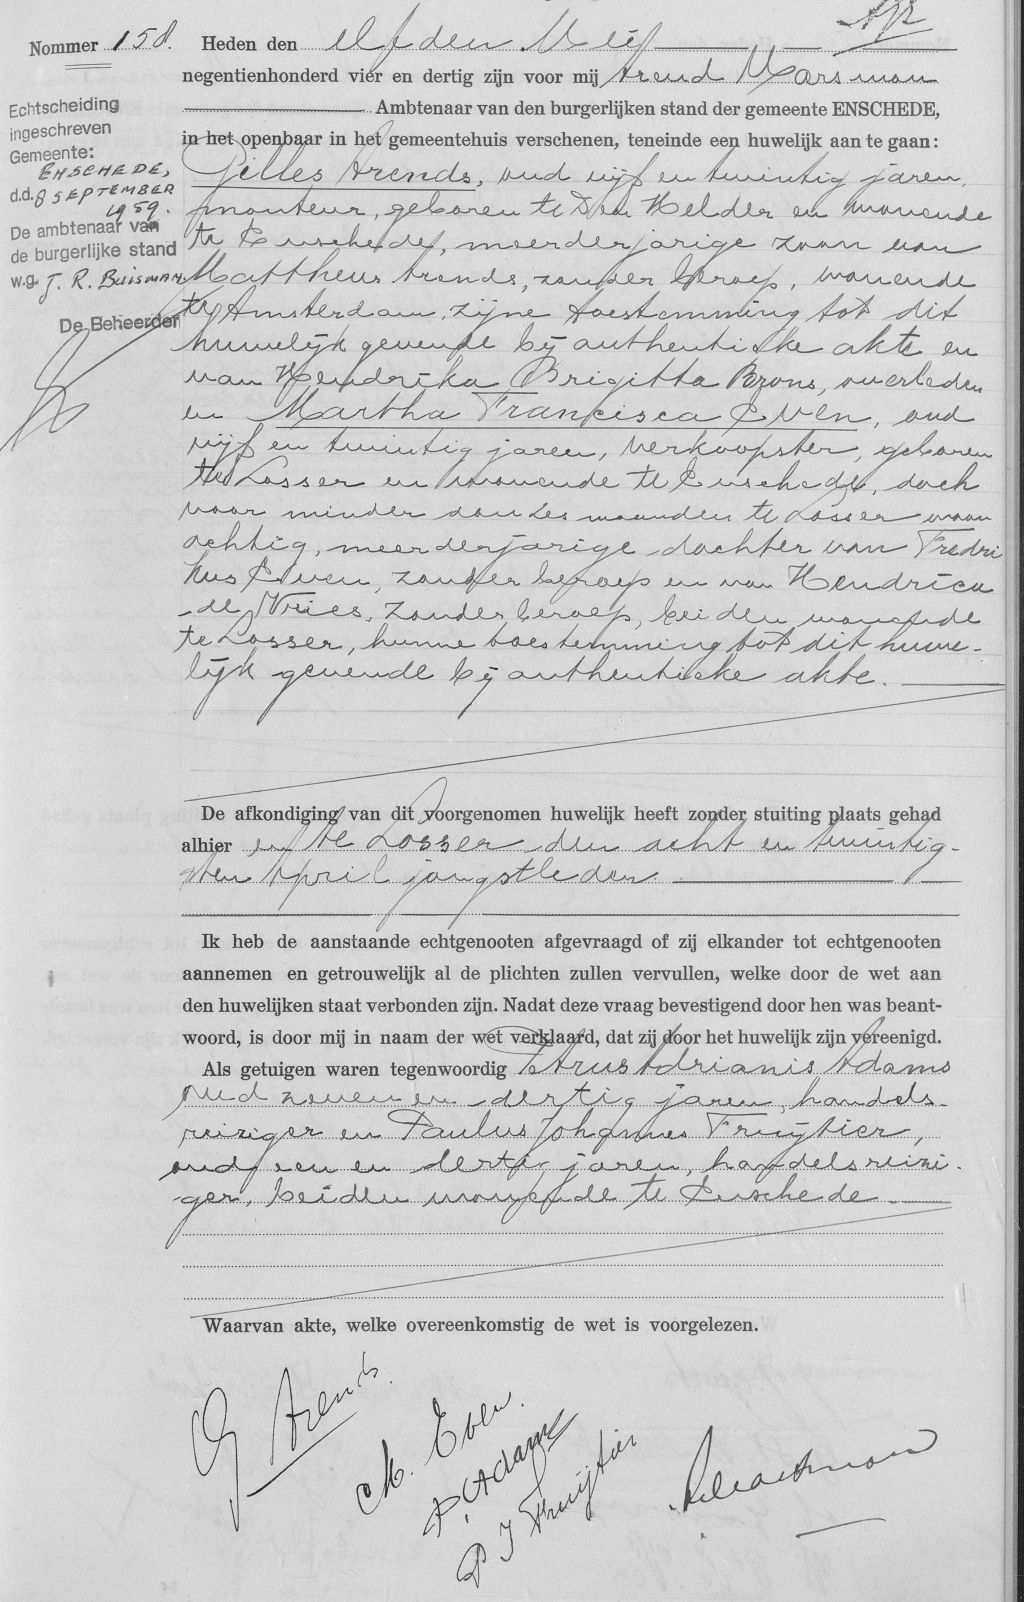 Nommer 158.
Heden den elfden Mei
negentienhonderd vier en dertig zijn voor mij Arend Marsman
Ambtenaar van den burgerlijken stand der gemeente ENSCHEDE,
in het openbaar in het gemeentehuis verschenen, teneinde een huwelijk aan te gaan:
Gilles Arends, oud vijf en twintig jaren,
monteur, geboren te Den Helder en wonende
te Enschede, meerderjarige zoon van
Mattheus Arends, zonder beroep, wonende
te Amsterdam, zijne toestemming tot dit
huwelijk gevende bij authentieke akte en
van Hendrika Brigitta Brons, overleden
en Martha Francisca Even, oud
vijf en twintig jaren, verkoopster, geboren
te Losser en wonende te Enschede, doch
voor minder dan zes maanden te Losser woon
achtig, meerderjarige dochter van Fredri
kus Even, zonder beroep en van Hendrica
de Vries, zonder beroep, beiden wonende
te Losser, hunne toestemming tot dit huwe-
lijk gevende bij authentieke akte.
Echtscheiding
ingeschreven
Gemeente:
ENSCHEDE,
d.d. 8 SEPTEMBER
1959.
De ambtenaar van
de burgerlijke stand
w.g. J. R. Buisman
De Beheerder
De afkondiging van dit voorgenomen huwelijk heeft zonder stuiting plaats gehad
alhier en te Losser den acht en twintig-
sten April jongstleden
Ik heb de aanstaande echtgenooten afgevraagd of zij elkander tot echtgenooten
aannemen en getrouwelijk al de plichten zullen vervullen, welke door de wet aan
den huwelijken staat verbonden zijn. Nadat deze vraag bevestigend door hen was beant-
woord, is door mij in naam der wet verklaard, dat zij door het huwelijk zijn vereenigd.
Als getuigen waren tegenwoordig Petrus Adrianis Adams
oud zeven en dertig jaren, handels-
reiziger en Paulus Johannes Fruijtier,
oud een en dertig jaren, handelsreizi-
ger, beiden wonende te Enschede
Waarvan akte, welke overeenkomstig de wet is voorgelezen.
G Arends.
M. Even.
P. Adams
P J Fruijtier